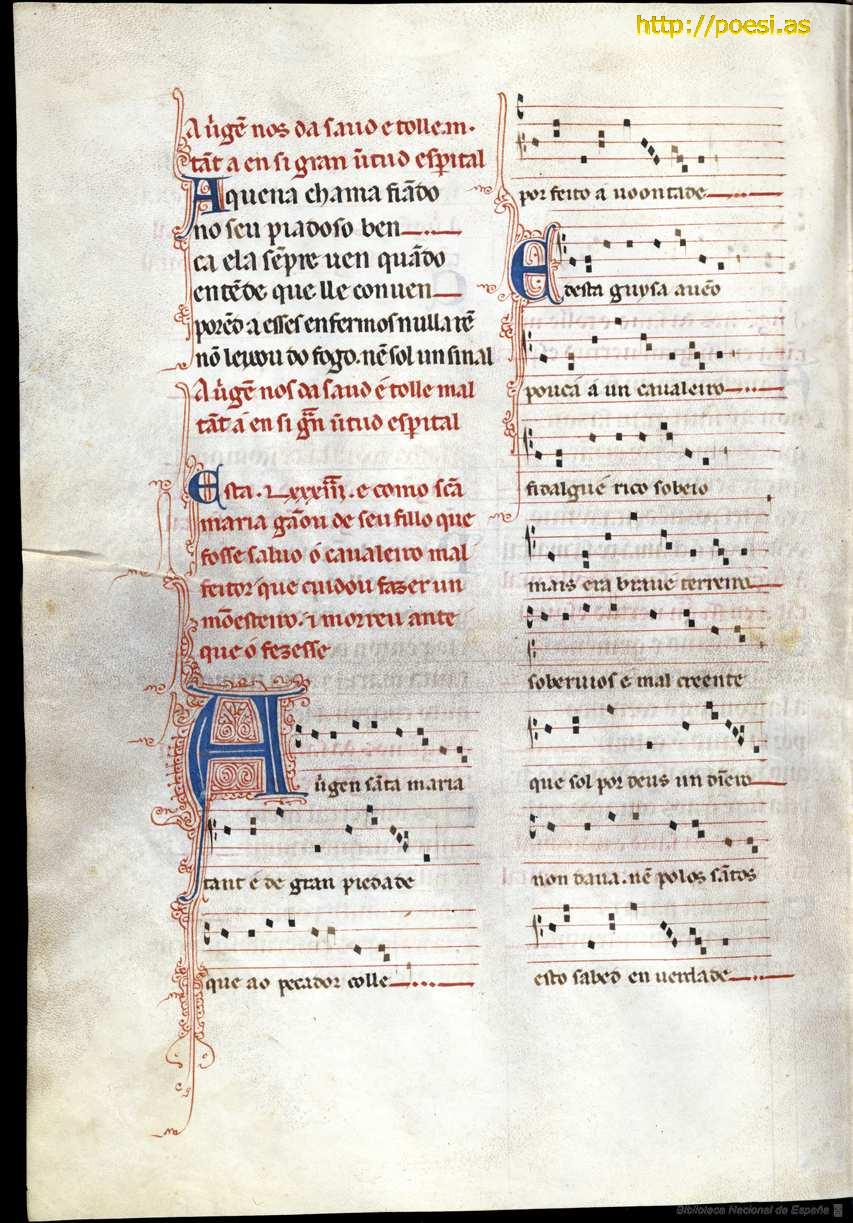 http://poesi.as
A ũgẽ nos da saud e tolle m·
tãt a en si gran ũtud esp̃ital
Aquena chama fiãdo
no seu piadoso ben
ca ela sẽpre uen quãdo
entẽde que lle conuen
porẽd a esses enfermos nulla rẽ
nõ leixou do fogo. nẽ sol un sinal
A ũgẽ nos da saud e tolle mal
tãt a en si g̃n ũtud esp̃ital
Esta .i. Lxxxiii. e como scã
maria gãou de seu fillo que
fosse saluo o caualeiro mal
feitor que cuidou fazer un
mõesteiro. i morreu ante
que o fezesse
A ũgen sãta maria
tant e de gran piedade
que ao pecador colle
por feito a uoontade
E desta guysa auẽo
pouca a un caualeiro
fidalgu e rico sobeio
mais era brau e terreiro
soberuios e mal creente
que sol por deus un dĩeiro
non daua. nẽ polos sãtos
esto sabed en uerdade
Biblioteca Nacional de España